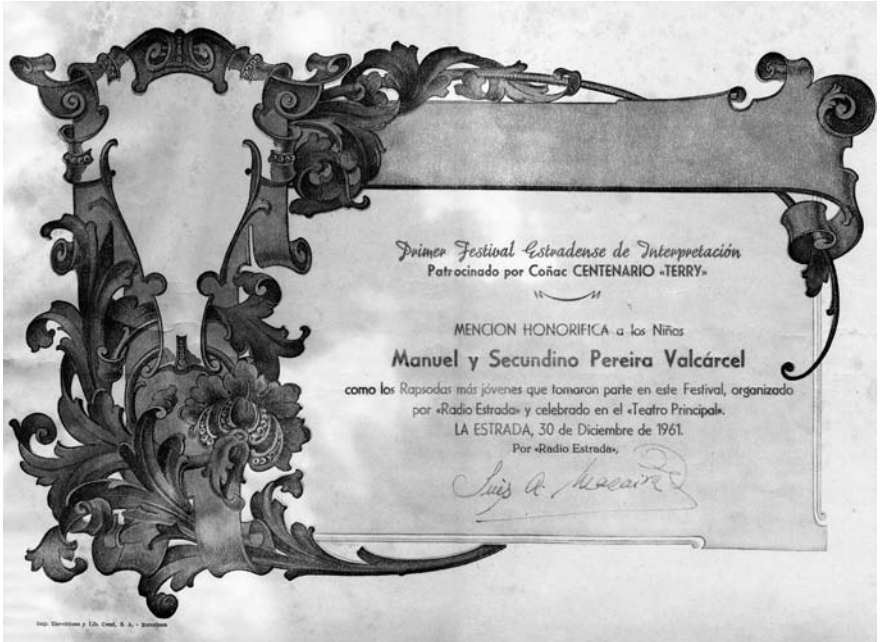 Primer Festival Estradense de Interpretación
Patrocinado por Coñac CENTENARIO «TERRY»
MENCION HONORIFICA a los Niños
Manuel y Secundino Pereira Valcárcel
como los Rapsodas más jóvenes que tomaron parte en este Festival, organizado
por «Radio Estrada» y celebrado en el «Teatro Principal».
LA ESTRADA, 30 de Diciembre de 1961.
Por «Radio Estrada»,
Luis A.
Imp. y Lib. S. A. - Barcelona